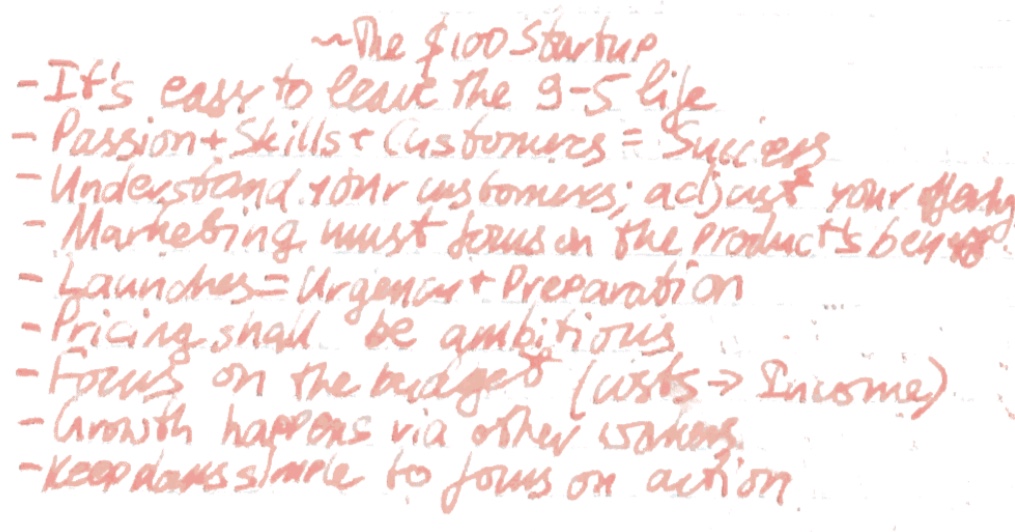 ~ The $100 Startup
- It's easy to leave the 9-5 life
- Passion + Skills + Customers = Success
- Understand your customers; adjust your offering
- Marketing must focus on the product's benefits
- Launches = Urgency + Preparation
- Pricing shall be ambitious
- Focus on the budget (costs -> Income)
- Growth happens via other
- Keep simple to focus on action